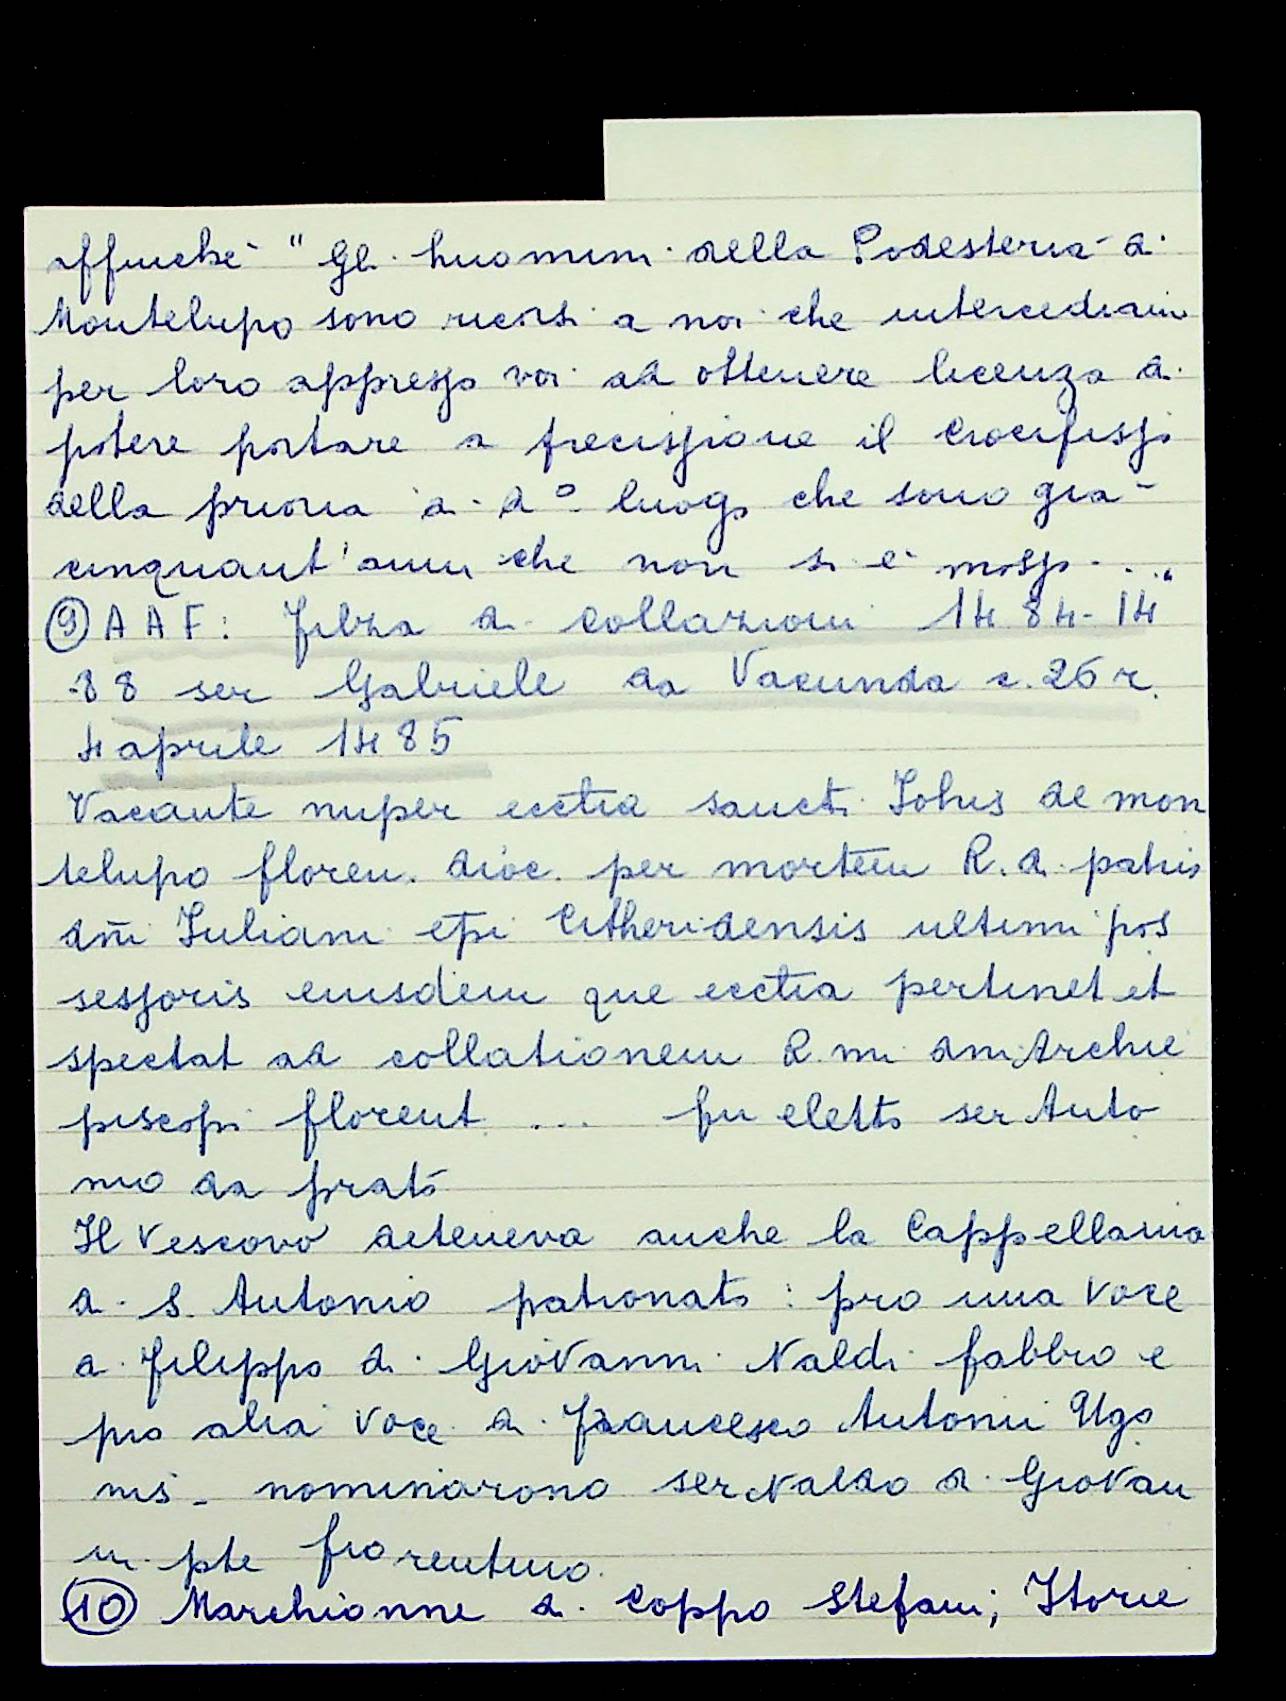 affinché "Gli huomini della Podesteria di
Montelupo sono ricorsi a noi che intercediam
per loro appresso voi ad ottenere licenza di
potere portare a precissione il Crocifisso
della prioria di d° luogo che sono già
cinquant'anni che non si è mosso..."
⑨ AAF: filza di collazioni 1484-14
-88 ser Gabriele da Vacunda c. 26 r.
4 aprile 1485
Vacante nuper ecctia sancti Johis de mon
telupo floren. dioc. per mortem R. d. patris
dni Iuliani epi Citheridensis ultimi pos
sessoris eiusdem que ecctia pertinet et
spectat ad collationem R.mi dni Archie
piscopi florent ... fu eletto ser Anto
nio da prato
Il Vescovo deteneva anche la Cappellania
di S. Antonio patronato: pro una voce
di filippo di Giovanni Naldi fabbro e
pro alia voce di francesco Antonii Ugo
nis - nominarono ser Naldo di Giovan
ni pte fiorentino.
⑩ Marchionne di Coppo Stefani; Istorie